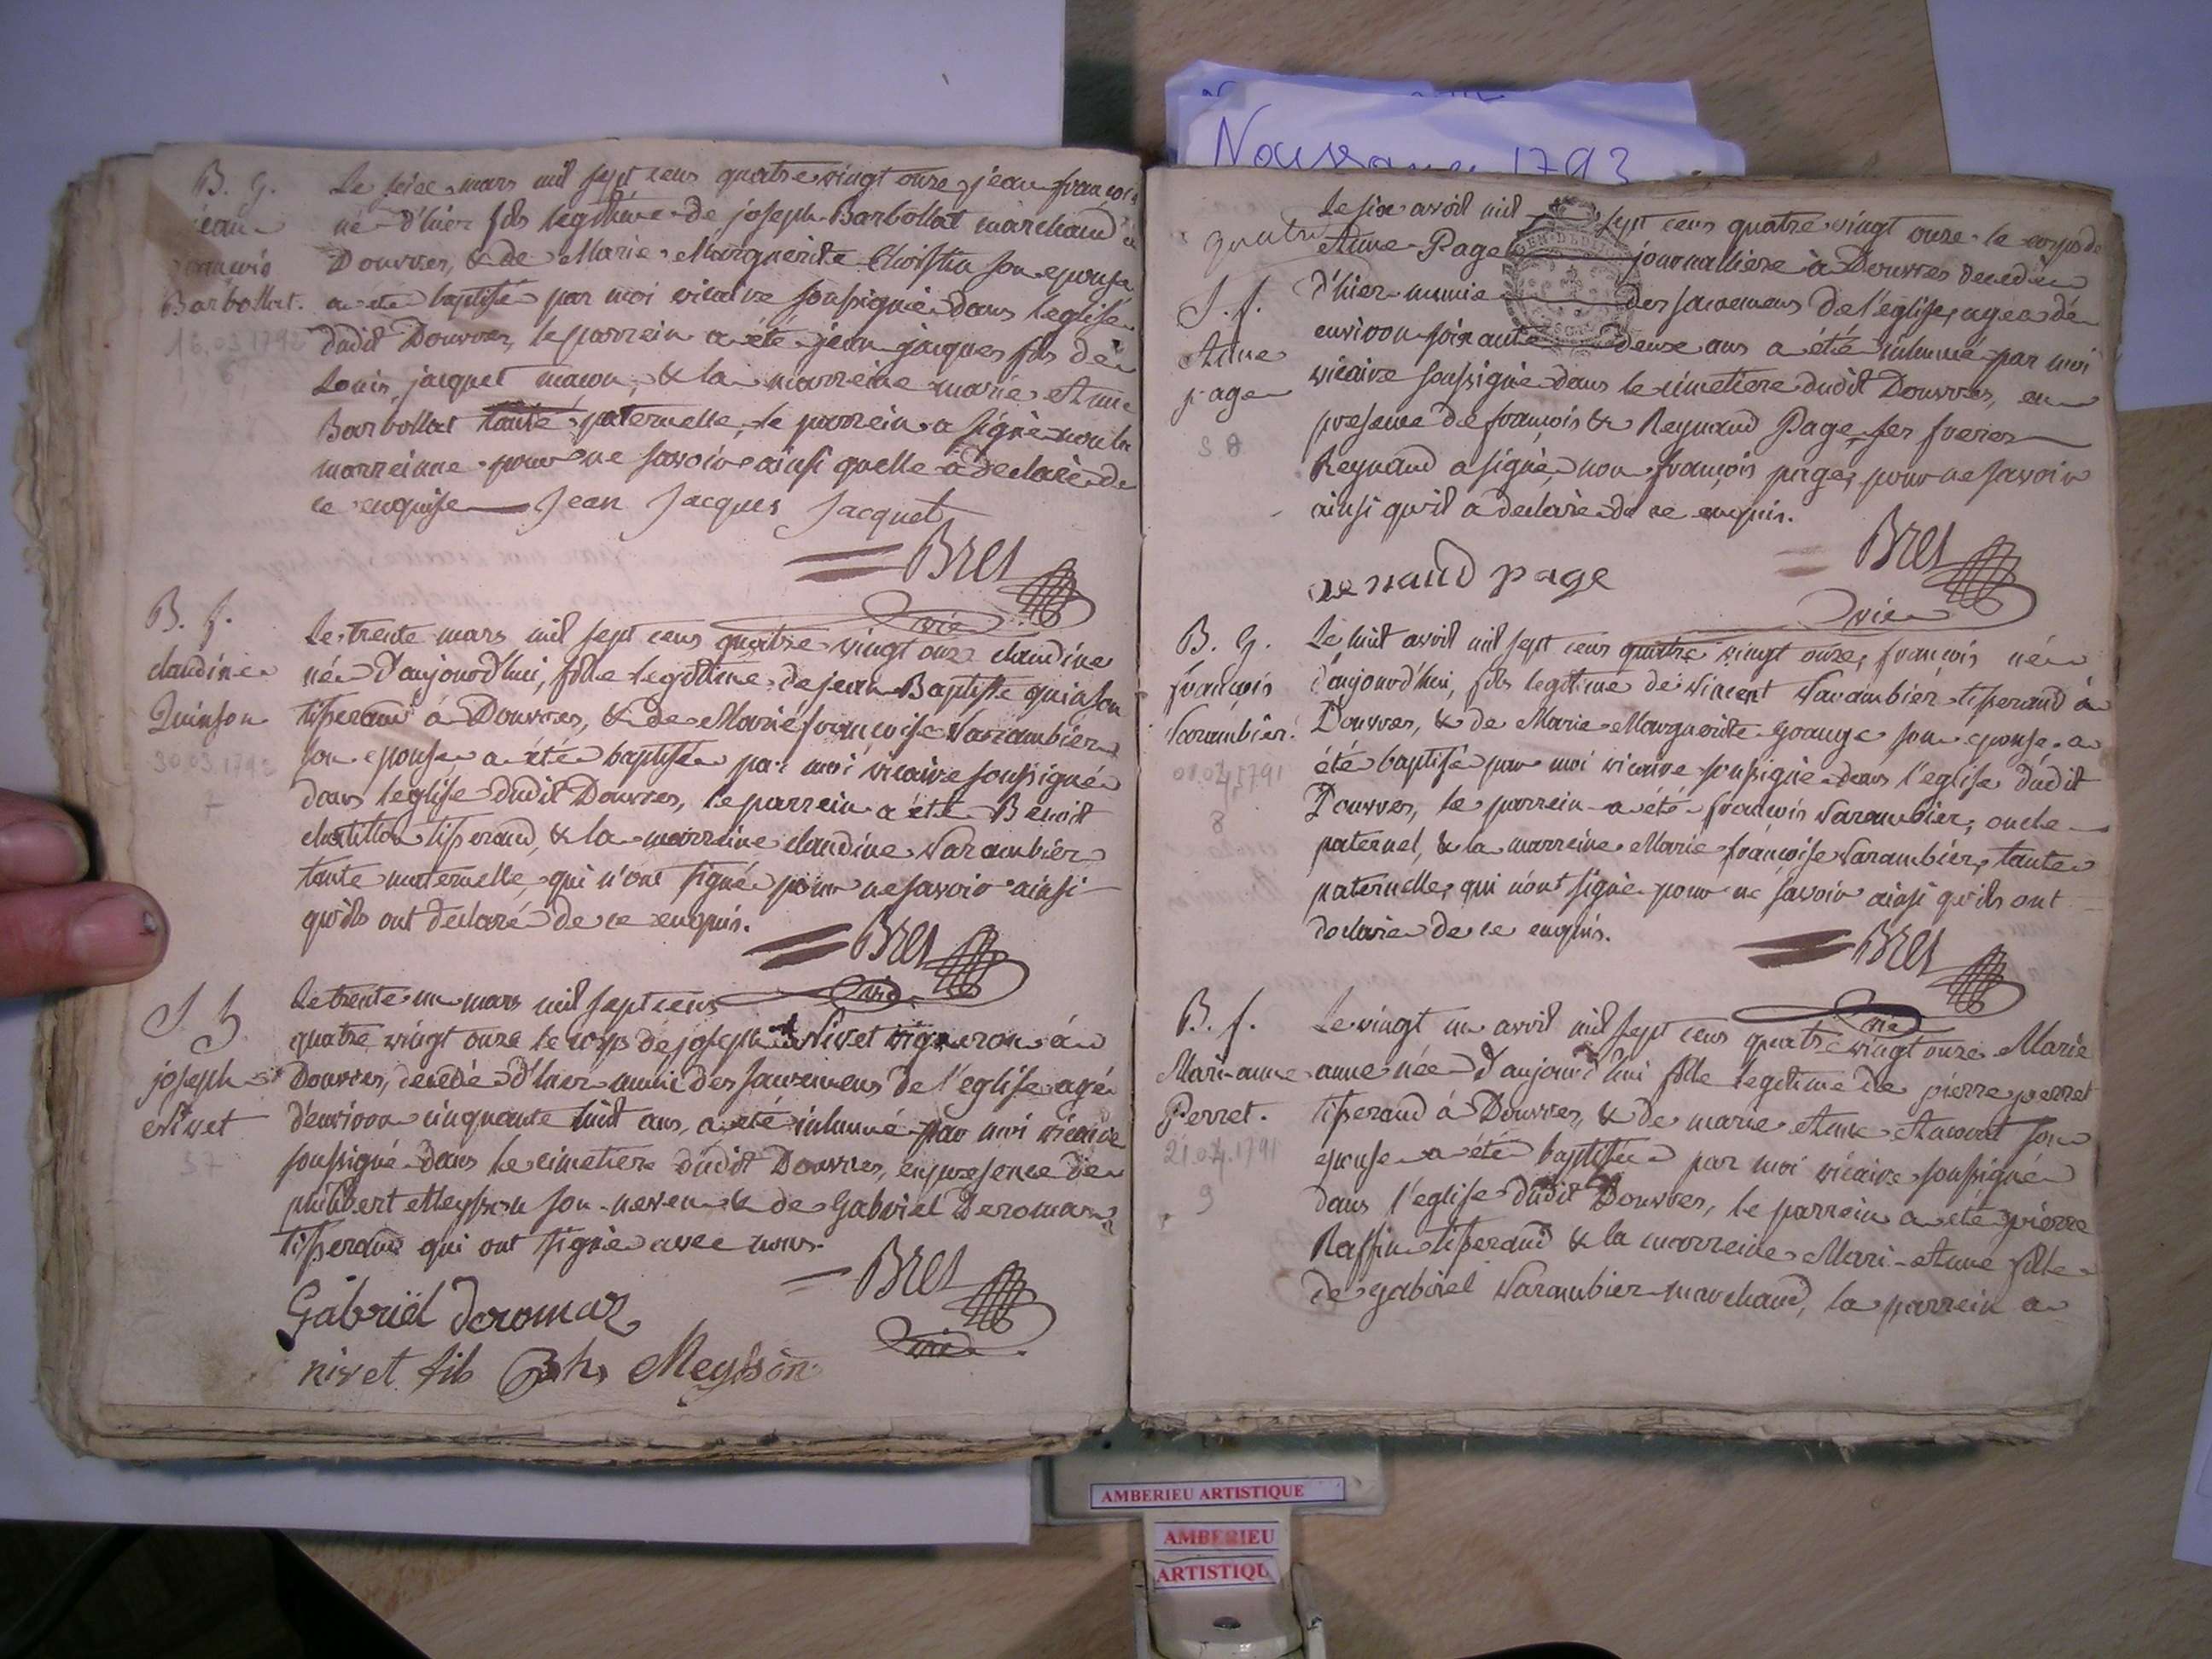 B. G.
jean
francois
Barbollat.
Le seize mars mil sept cens quatre vingt onze, jean francois
né d'hier fils legitime de joseph Barbollat marchand à
Douvres, & de Marie Marguerite Christin son epouse
a été baptisé par moi vicaire soussigné dans l'eglise
dudit Douvres, le parrein a été jean jacques fils de
Louis jacquet macon, & la marreine marie Anne
Barbollat tante paternelle, le parrein a signé non la
marreinne pour ne savoir ainsi quelle a declaré de
ce enquise Jean Jacques Jacquet
= Bret
vic
B. f.
claudine
Quinson
30.03.179
7
Le trente mars mil sept cens quatre vingt onze claudine
née d'aujourd'hui, fille legitime de jean Baptiste quinson
tisserand à Douvres, & de Marie françoise Varambier
son epouse a été baptisée par moi vicaire soussigné
dans l'eglise dudit Douvres, le parrein a été Benoit
chatillon tisserand, & la marreine claudine Varambier
tante maternelle, qui n'ont signé pour ne savoir ainsi
qu'ils ont declaré de ce enquis.
= Bret
vic
S. h.
joseph
Nivet
57
Le trente un mars mil sept cens
quatre vingt onze le corps de joseph Nivet vigneron à
Douvres, decedé d'hier muni des sacremens de l'eglise agé
d'environ cinquante huit ans, a été inhumé par moi vicaire
soussigné dans le cimetiere dudit Douvres, en presence de
philibert Meysson son neveu & de Gabriel Deromas
tisserand qui ont signé avec nous.
= Bret
vic
Gabriël deromaz
nivet fils Phs Meysson
quatre
S. f.
Anne
page
58
Le six avril mil sept cens quatre vingt onze le corps de
Anne Page journalliere à Douvres decedée
d'hier munie des sacremens de l'eglise, agée de
environ soixante deux ans a été inhumé par moi
vicaire soussigné dans le cimetiere dudit Douvres, en
presence de françois & Reynaud Page ses freres
Reynaud a signé, non françois page, pour ne savoir
ainsi qu'il a declaré de ce enquis.
= Bret
vic
renaud page
B. G.
françois
Varambier.
08.04.1791
8
Le huit avril mil sept cens quatre vingt onze, francois né
d'aujourd'hui, fils legitime de Vincent Varambier tisserand à
Douvres, & de Marie Marguerite Grange son epouse a
été baptisé par moi vicaire soussigné dans l'eglise dudit
Douvres, le parrein a été francois Varambier, oncle
paternel, & la marreine Marie françoise Varambier, tante
paternelle, qui n'ont signé pour ne savoir ainsi qu'ils ont
declaré de ce enquis.
= Bret
vic
B. f.
Mari-anne
Perret.
21.04.1791
9
Le vingt un avril mil sept cens quatre vingt onze Marie
anne née d'aujourd'hui fille legitime de pierre perret
tisserand à Douvres, & de marie Anne son
epouse a été baptisée par moi vicaire soussigné
dans l'eglise dudit Douvres, le parrein a été pierre
Raffin tisserand & la marreine Mari-Anne fille
de gabriel Varambier marchand, le parrein a
AMBERIEU ARTISTIQUE
AMBERIEU
ARTISTIQU